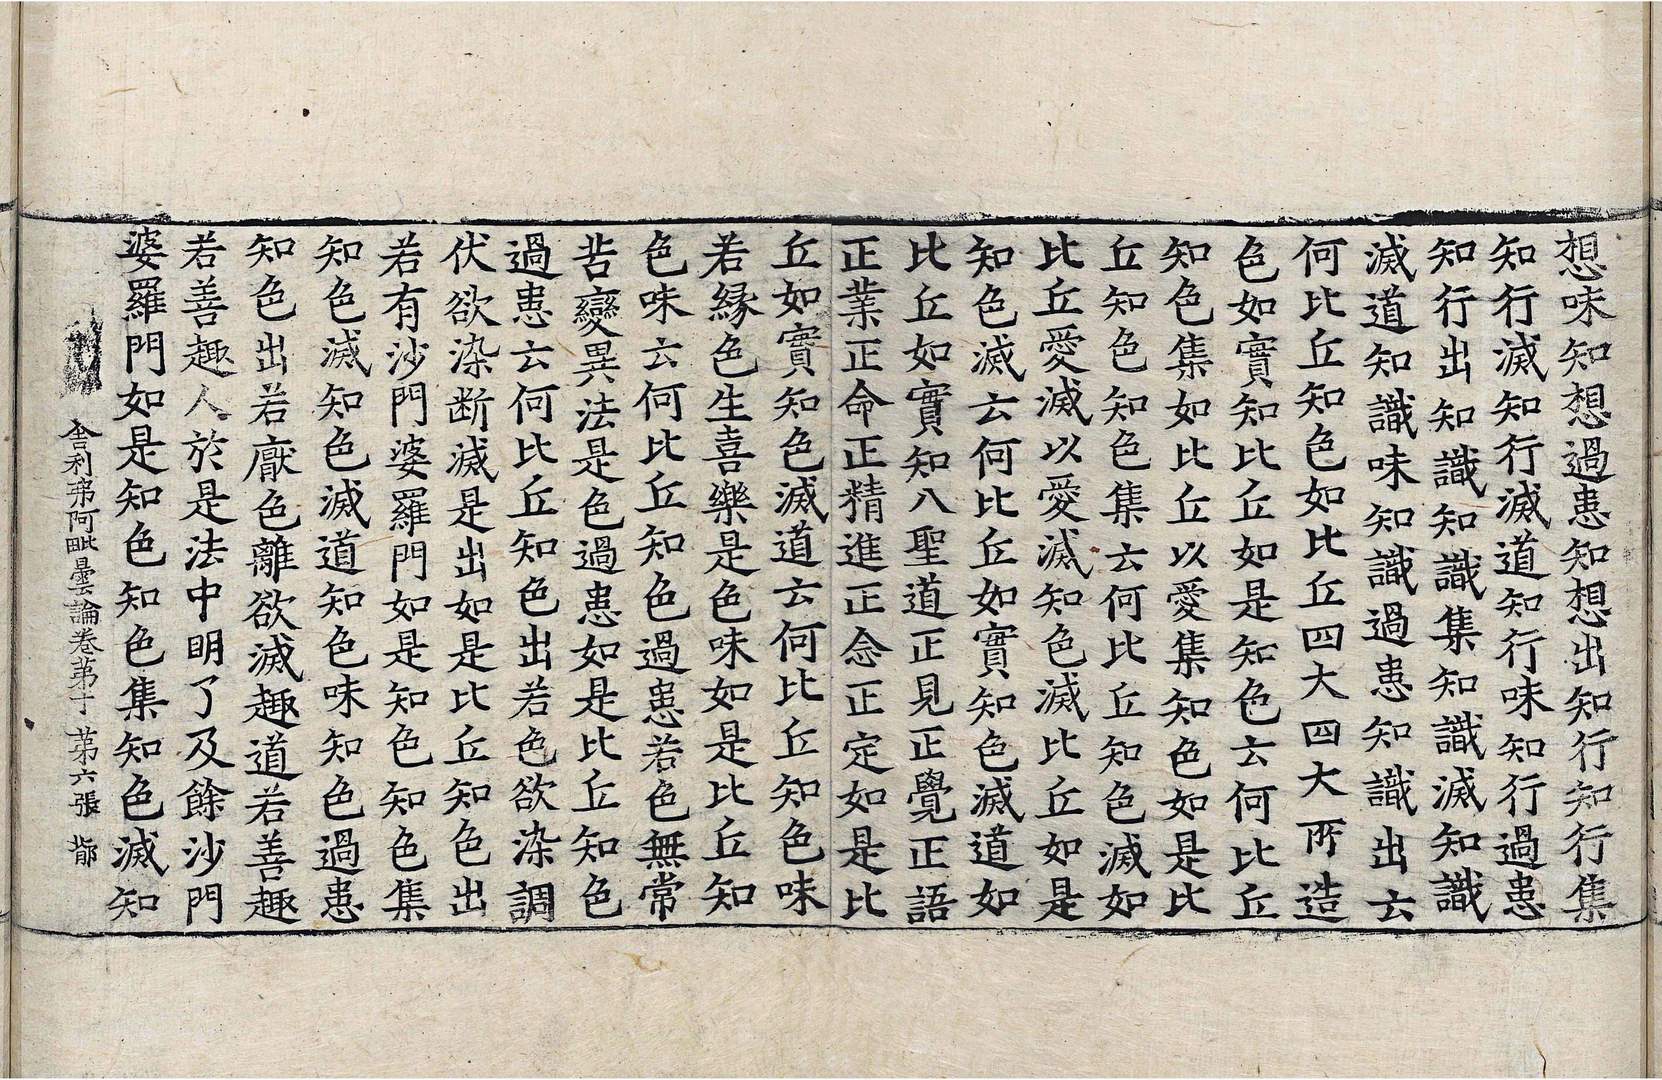 想味知想過患知想出知行知行集
知行滅知行滅道知行味知行過患
知行出知識知識集知識滅知識
滅道知識味知識過患知識出云
何比丘知色如比丘四大四大所造
色如實知比丘如是知色云何比丘
知色集如比丘以愛集知色如是比
丘知色知色集云何比丘知色滅如
比丘愛滅以愛滅知色滅比丘如是
知色滅云何比丘如實知色滅道如
比丘如實知八聖道正見正覺正語
正業正命正精進正念正定如是比
丘如實知色滅道云何比丘知色味
若縁色生喜樂是色味如是比丘知
色味云何比丘知色過患若色無常
苦變異法是色過患如是比丘知色
過患云何比丘知色出若色欲染調
伏欲染断滅是出如是比丘知色出
若有沙門婆羅門如是知色知色集
知色滅知色滅道知色味知色過患
知色出若厭色離欲滅趣道若善趣
若善趣人於是法中明了及餘沙門
婆羅門如是知色知色集知色滅知
舍利弗阿毗曇論卷第十 第六張